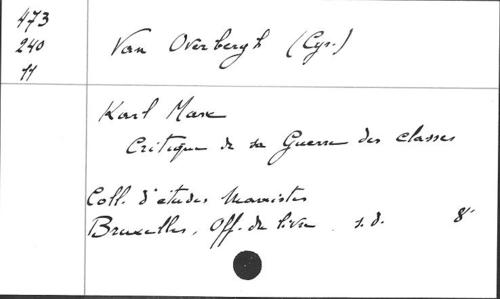 473
240
11
Van Overbergh (Cyr.)
Karl Marx
Critique de sa Guerre des classes
Coll. d'études Marxistes
Bruxelles, Off. du livre s.d. 8°